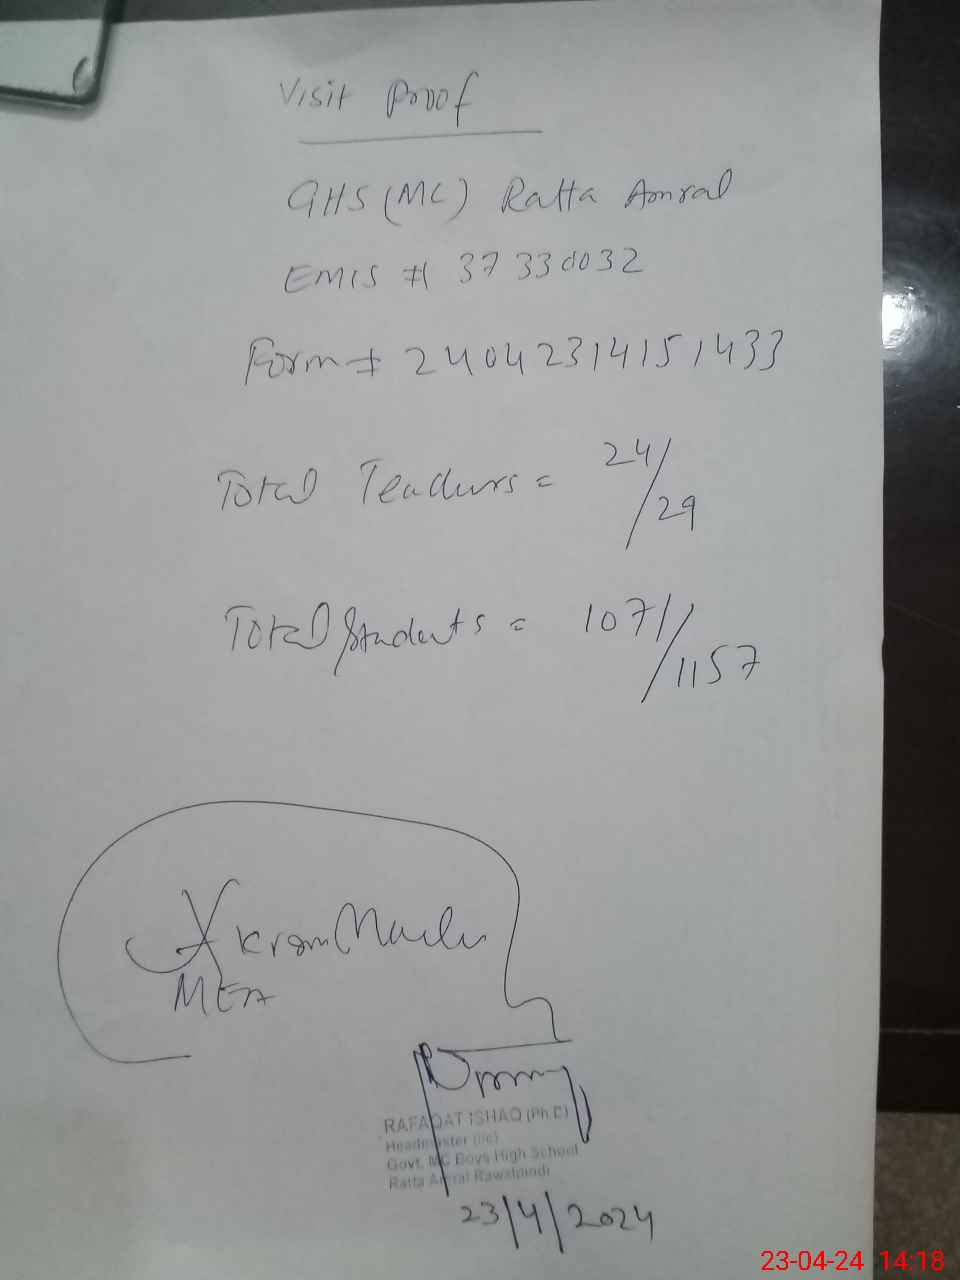 Visit Proof
GHS (MC) Ratta Amral
EMIS # 37330032
Form # 24042314151433
Total Teachers = 24/29
Total Students = 1071/1157
Akram
MEA
RAFAQAT ISHAQ (Ph.D)
Headmaster
Govt. MC Boys High School
Ratta Amral Rawalpindi
23/4/2024
23-04-24 14:18